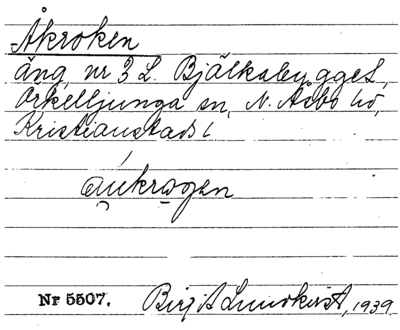 Åkroken
äng nr 3 L. Bjälkabygget,
Örkelljunga sn, N. Åsbo hd,
Kristianstads l
áukrogen
Nr 5507. Birgit Lundkvist, 1939.